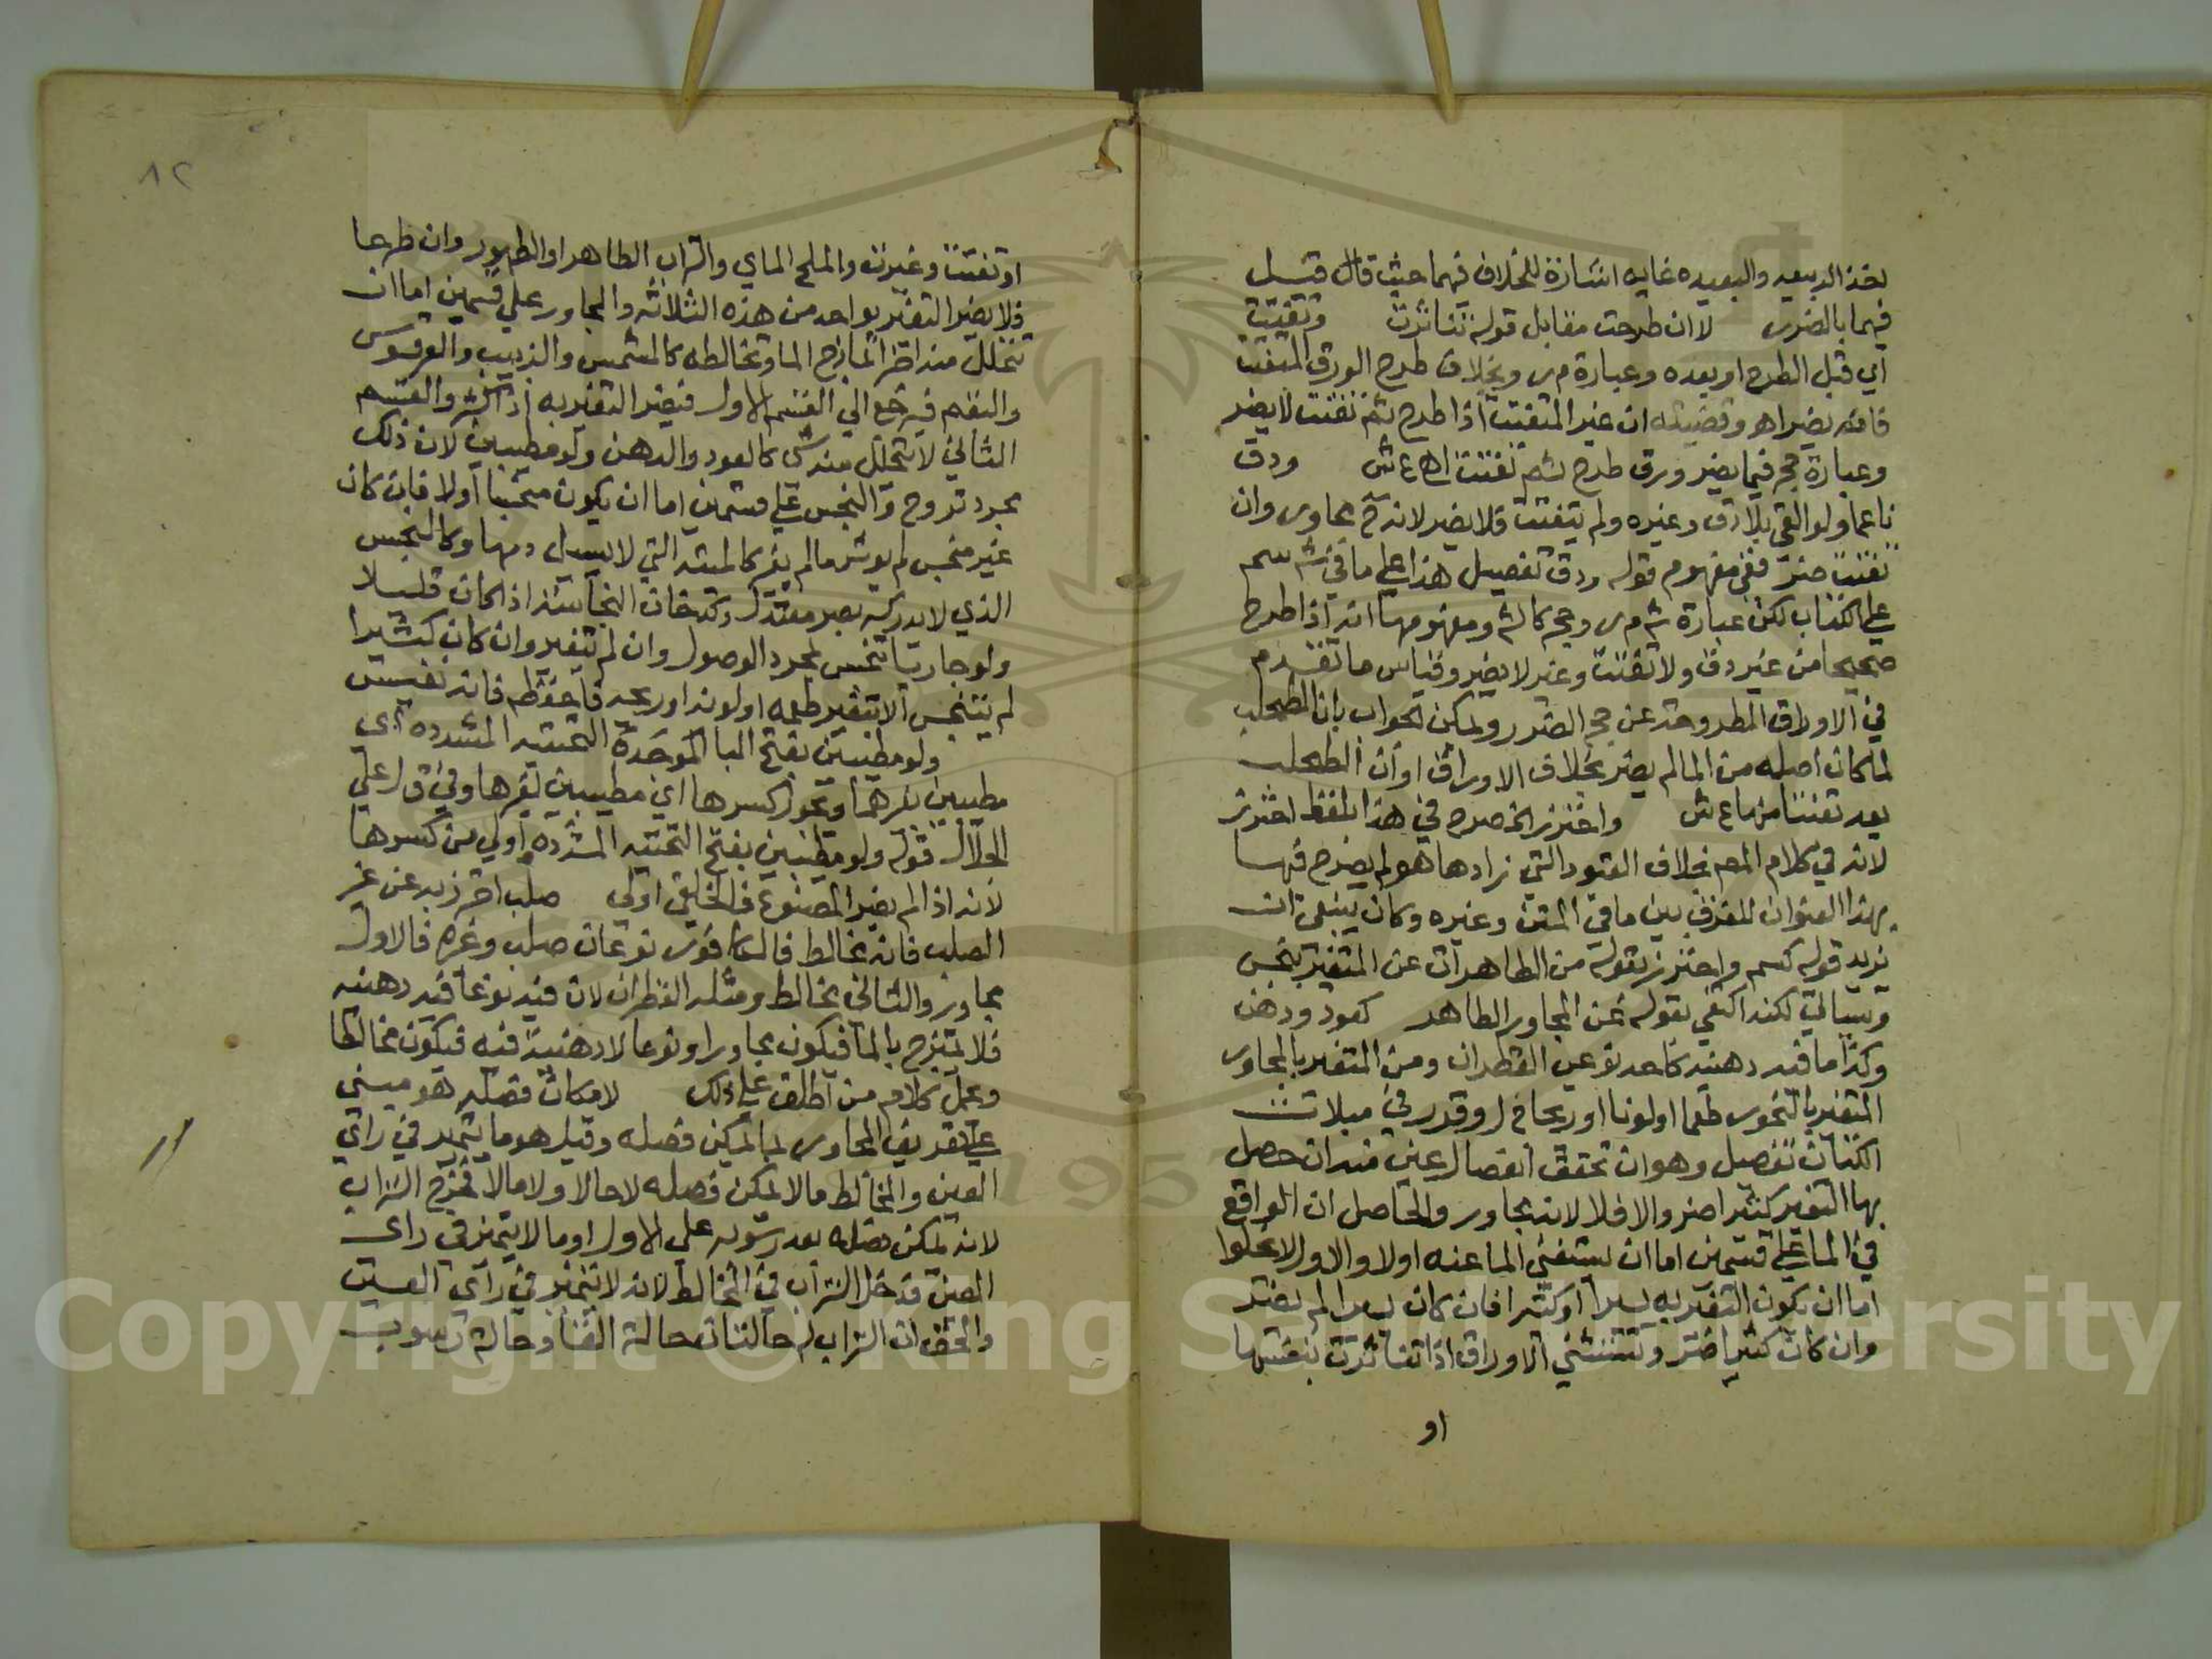 فهما بالضرر لا ان طرحت مقابل قوله تناثرت وتفتتت
اي قبل الطرح او بعده وعبارة م ر وبخلاف طرح الورق المتفتت
فانه يضر اه وقضيته ان غير المتفتت اذا طرح ثم تفتت لا يضر
وعبارة حج فيما يضر ورق طرح ثم تفتت اه ع ش ودق
ناعما ولو القي بلا دق وغيره ولم يتفتت فلا يضر لانه ح مجاور وان
تفتت ضر ففي مفهوم قوله ودق تفصيل هذا على ما في
على الكتاب لكن عبارة ش م ر وحج كالش ومفهومها انه اذا طرح
صحيحا من غير دق ولا تفتت وغير لا يضر وقياس ما تقدم
في الاوراق المطروحة عن حج الضرر ويمكن الجواب بان الطحلب
لما كان اصله من الما لم يضر بخلاف الاوراق او ان الطحلب
بعد تفتتا منها ع ش واحترز الخ صرح في هذا بلفظ احترز
لانه في كلام المصم بخلاف القيود التي زادها هو لم يصرح فيها
بهذا العنوان للفرق بين ما في المتن وغيره وكان ينبغي ان
يزيد قوله كسم واحترز بقوله من الطاهرات عن المتغير بنجس
وسياتي لكنه اكتفى بقوله عن المجاور الطاهر كعود ودهن
وكذا ما فيه دهنية كاحد نوعي القطران ومن المتغير بالمجاور
المتغير بالبخور طعما او لونا او ريحا
الكتان تفصيل وهو ان تحقق انفصال عين منه ان حصل
بها التغير كثيرا ضر والا فلا لانه مجاور والحاصل ان الواقع
في الما على قسمين اما ان يستغني الما عنه او لا والاول لا يخلوا
اما ان يكون التغير به يسيرا او كثيرا فان كان يسيرا لم يضر
وان كان كثيرا ضر ويستثني الاوراق اذا تناثرت بنفسها
او
٨٢
او تفتتت وغيرت والملح الماي والتراب الطاهر او الطهور وان طرحا
فلا يضر التغير بواحد من هذه الثلاثه والمجاور على قسمين اما ان
يتحلل منه اجزا تمازج الما وتخالطه كالمشمس والزبيب والعرقسوس
والبقم فيرجع الي القسم الاول فيضر التغير به اذا كثر والقسم
الثاني لا يتحلل منه شي كالعود والدهن ولو مطيبين لان ذلك
مجرد تروح والنجس على قسمين اما ان يكون منجسا او لا فان كان
غير منجس لم يوثر ما لم يغير كالميته التي لا يسيل دمها وكالنجس
الذي لا يدركه بصر معتدل وكدخان النجاسة اذا كان قليلا
ولو جاريا تنجس بمجرد الوصول وان لم يتغير وان كان كثيرا
لم يتنجس الا بتغير طعمه او لونه او ريحه فاحفظه فانه نفيس
ولو مطيبين بفتح اليا الموحدة التحتيه المشدده اي
مطيبين بغيرهما ويجوز كسرها اي مطيبين لغيرها وفي ق ل على
الجلال قوله ولو مطيبين بفتح التحتيه المشدده واولى من كسرها
لانه اذا لم يضر المصنوع فالخلقي اولى صلب احترز به عن غير
الصلب فانه مخالط فالكافور نوعان صلب وغيره فالاول
مجاور والثاني مخالط ومثله القطران لان فيه نوعا فيه دهنيه
فلا يمتزج بالما فيكون مجاورا ونوعا لا دهنية فيه فيكون مخالطا
وحمل كلام من اطلق على ذلك لامكان فصله هو مبني
على تعريف المجاور بما يمكن فصله وقيل هو ما يتميز في راي
العين والمخالط ما لا يمكن فصله لا حالا ولا مالا فخرج التراب
لانه يمكن فصله بعد رسوبه على الاول او ما لا يتميز في راي
العين فدخل التراب في المخالط لانه لا يتميز في راي العين
والحق ان التراب له حالتان حالة القا وحالة رسوب